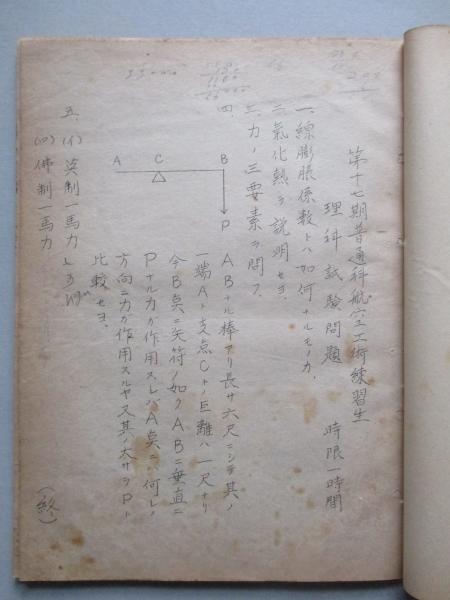 第十七期普通科航空工術練習生
理科試験問題 時限一時間
一、線膨脹係数トハ如何ナルモノカ.
二、氣化熱ヲ説明セヨ.
三、力ノ三要素ヲ問フ.
四、
A C B
P
ABナル棒アリ長サ六尺ニシテ其ノ
一端Aト支点Cトノ巨離ハ一尺ナリ
今B点ニ矢符ノ如クABニ垂直ニ
Pナル力ガ作用スレバA点ニハ何レノ
方向ニ力ガ作用スルヤ又其ノ大サヲPト
比較セヨ.
五、(イ)英制一馬力
(ロ)佛制一馬力
(終)